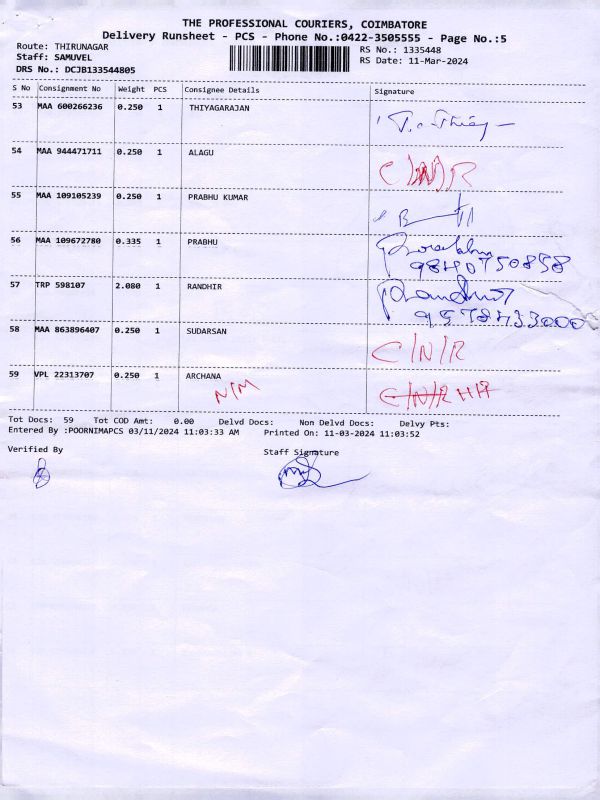 THE PROFESSIONAL COURIERS, COIMBATORE
Delivery Runsheet - PCS - Phone No.:0422-3505555 - Page No.:5
Route: THIRUNAGAR
Staff: SAMUVEL
DRS No.: DCJB133544805
RS No.: 1335448
RS Date: 11-Mar-2024
S No Consignment No Weight PCS Consignee Details Signature
53 MAA 600266236 0.250 1 THIYAGARAJAN
54 MAA 944471711 0.250 1 ALAGU C/N/R
55 MAA 109105239 0.250 1 PRABHU KUMAR
56 MAA 109672780 0.335 1 PRABHU Prabhu
9840750858
57 TRP 598107 2.080 1 RANDHIR Randhir
58 MAA 863896407 0.250 1 SUDARSAN C/N/R
59 VPL 22313707 0.250 1 ARCHANA N/M C/N/R
Tot Docs: 59 Tot COD Amt: 0.00 Delvd Docs: Non Delvd Docs: Delvy Pts:
Entered By :POORNIMAPCS 03/11/2024 11:03:33 AM Printed On: 11-03-2024 11:03:52
Verified By Staff Signature